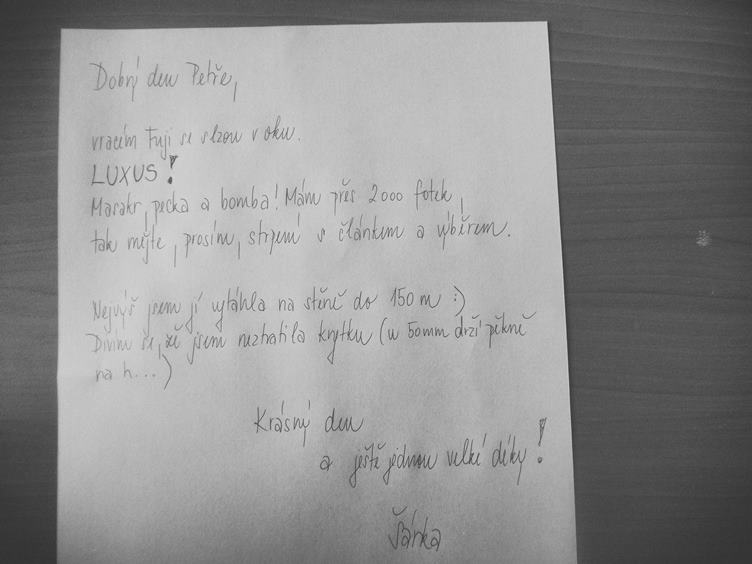 Dobrý den Petře,
vracím Fuji se slzou v oku.
LUXUS!
Masakr, pecka a bomba! Mám přes 2000 fotek,
tak mějte, prosím, strpení s článkem a výběrem.
Nejvýš jsem jí vytáhla na stěně do 150 m :)
Divím se, že jsem neztratila krytku (u 50mm drží pěkně
na h...)
Krásný den
a ještě jednou velké díky!
Šárka